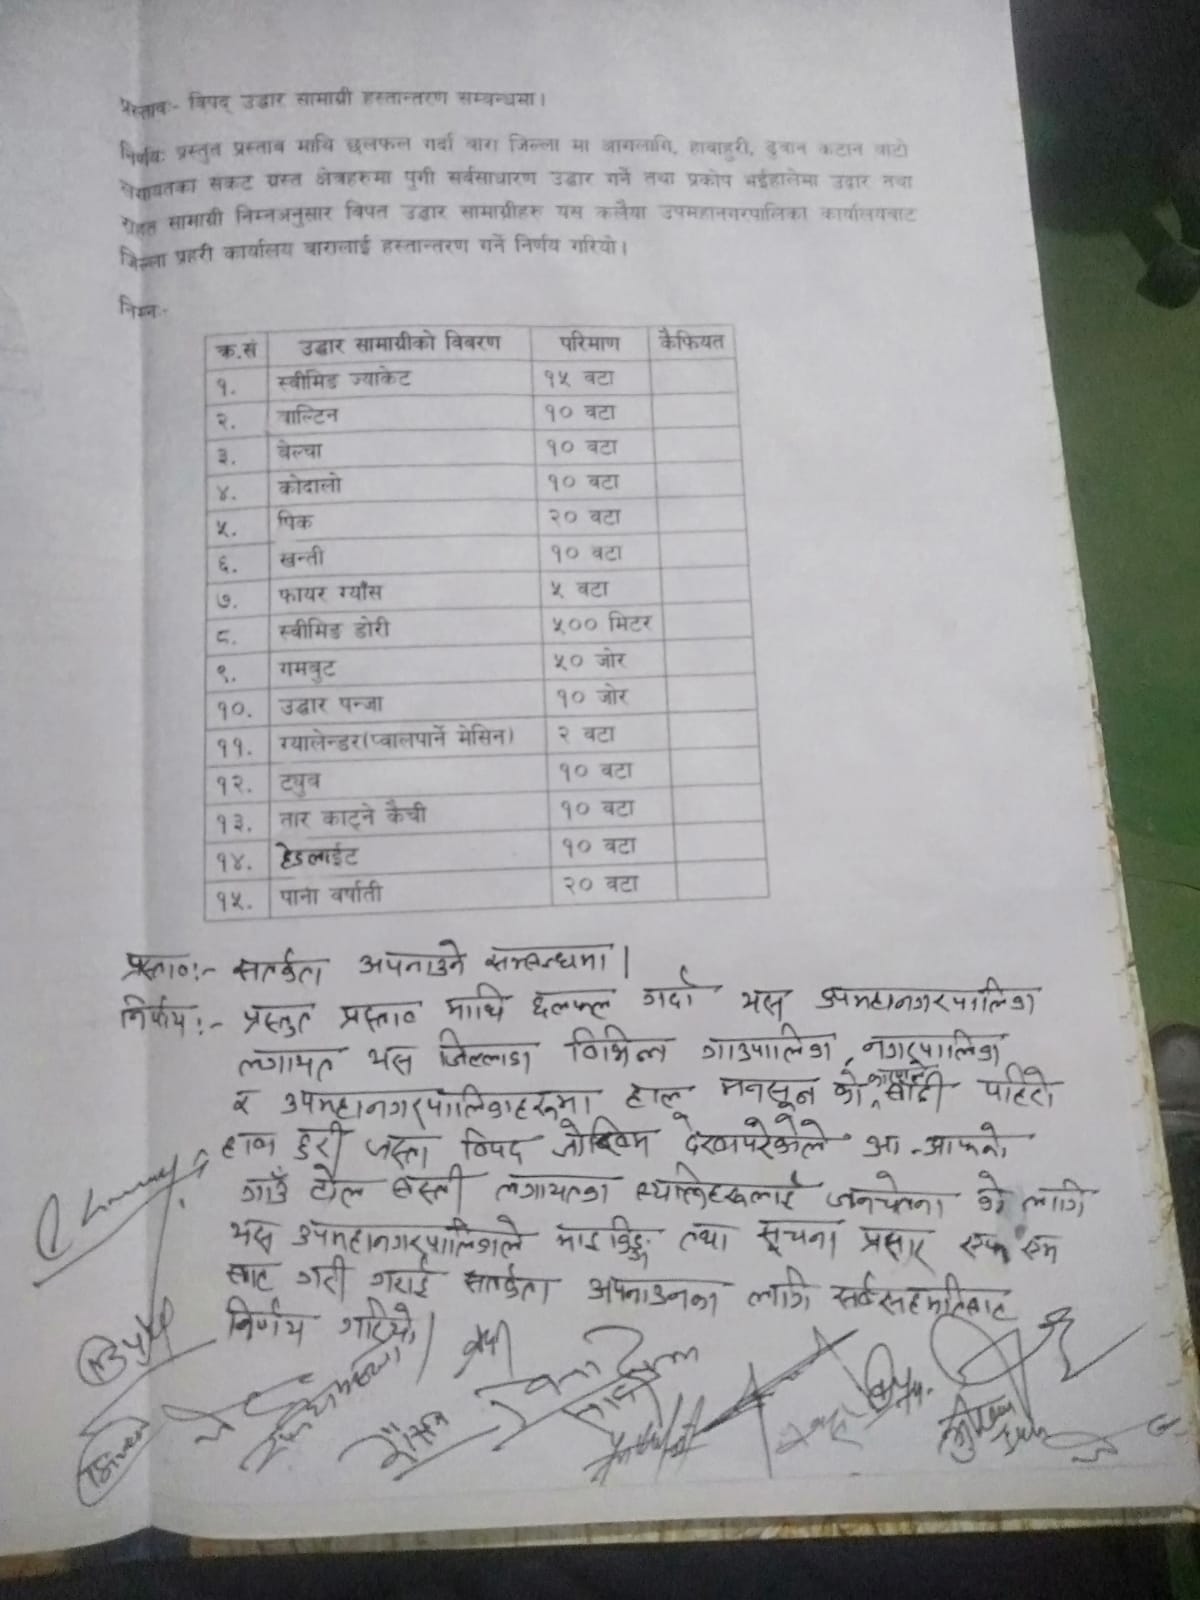 प्रस्तावः- विपद् उद्धार सामाग्री हस्तान्तरण सम्बन्धमा।
निर्णयः प्रस्तुत प्रस्ताव माथि छलफल गर्दा बारा जिल्ला मा आगलागि, हावाहुरी, डुवान कटान बाटो
लगायतका संकट ग्रस्त क्षेत्रहरुमा पुगी सर्वसाधारण उद्धार गर्ने तथा प्रकोप भईहालेमा उदार तथा
राहत सामाग्री निम्नअनुसार विपत उद्धार सामाग्रीहरु यस कलैया उपमहानगरपालिका कार्यालयबाट
जिल्ला प्रहरी कार्यालय बारालाई हस्तान्तरण गर्ने निर्णय गरियो।
निम्नः-
क्र.सं उद्धार सामाग्रीको विवरण परिमाण कैफियत
१. स्वीमिङ ज्याकेट १५ वटा
२. वाल्टिन १० वटा
३. बेल्चा १० वटा
४. कोदालो १० वटा
५. पिक २० वटा
६. खन्ती १० वटा
७. फायर ग्याँस ५ वटा
८. स्वीमिङ डोरी ५०० मिटर
९. गमबुट ५० जोर
१०. उद्धार पन्जा १० जोर
११. ग्यालेन्डर(प्वालपार्ने मेसिन) २ वटा
१२. ट्युव १० वटा
१३. तार काट्ने कैची १० वटा
१४. हेडलाईट १० वटा
१५. पाना वर्षाती २० वटा
प्रस्तावः- सतर्कता अपनाउने सम्बन्धमा।
निर्णयः- प्रस्तुत प्रस्ताव माथि छलफल गर्दा यस उपमहानगरपालिका
लगायत यस जिल्लाका विभिन्न गाउपालिका, नगरपालिका
र उपमहानगरपालिकाहरुमा हालू मनसून को कारणले बाढी पहिरो
हावा हुरी जस्ता विपद जोखिम देखापरेकोले आ-आफ्नो
गाउँ टोल बस्ती लगायतका व्यक्तिहरुलाई जनचेतना को लागि
यस उपमहानगरपालिकाले माइकिङ्ग तथा सूचना प्रसार
बाट गरी गराई सतर्कता अपनाउनका लागि सर्वसहमतिबाट
निर्णय गरियो।